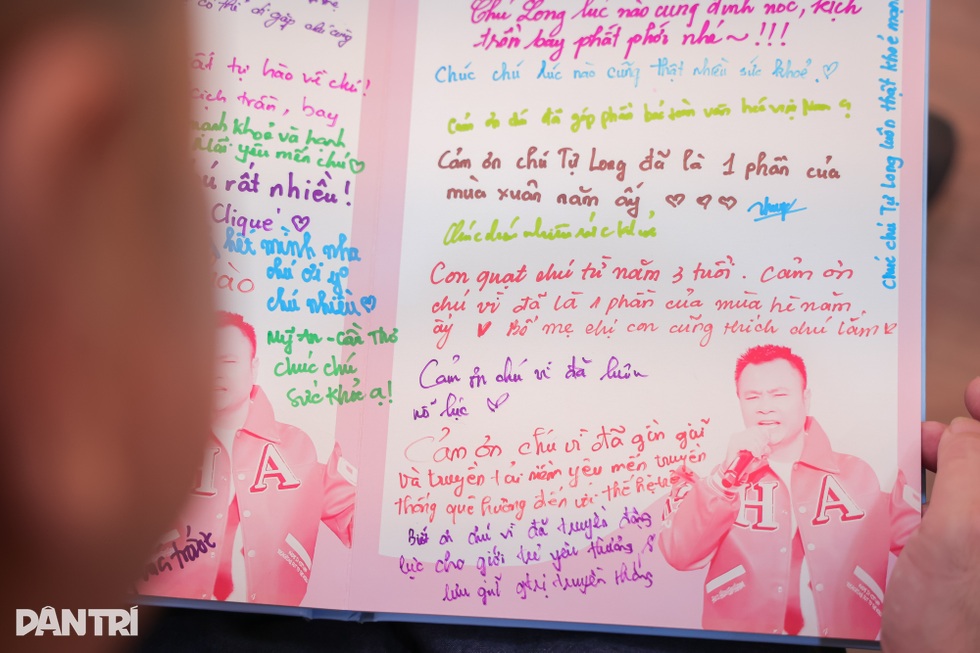 có thể đi gặp chú cùng
rất tự hào về chú!
kịch trần, bay
mạnh khoẻ và hạnh
Mãi yêu mến chú ♡
chú rất nhiều!
Clique' ♡
hết mình nha
chú ơi
chú nhiều ♡
Mỹ An - Cần Thơ
chúc chú
sức khoẻ ạ!
H A
DÂN TRÍ
Chú Long lúc nào cũng đỉnh nóc, kịch
trần bay phất phới nhé ~ !!!
Chúc chú lúc nào cũng thật nhiều sức khoẻ. ♡
Cảm ơn chú đã góp phần bảo tồn văn hoá việt Nam ạ
Cảm ơn chú Tự Long đã là 1 phần của
mùa xuân năm ấy ♡ ♡ ♡
Chúc chú nhiều sức khoẻ
Con quạt chú từ năm 3 tuổi. Cảm ơn
chú vì đã là 1 phần của mùa hè năm
ấy ♥ Bố mẹ chị con cũng thích chú lắm ♡
Cảm ơn chú vì đã luôn
nỗ lực ♡
Cảm ơn chú vì đã gìn giữ
và truyền tải niềm yêu mến truyền
thống quê hương đến với thế hệ trẻ
Biết ơn chú vì đã truyền động
lực cho giới trẻ yêu thương &
lưu giữ giá trị truyền thống
H A
Chúc chú Tự Long luôn thật khoẻ mạnh